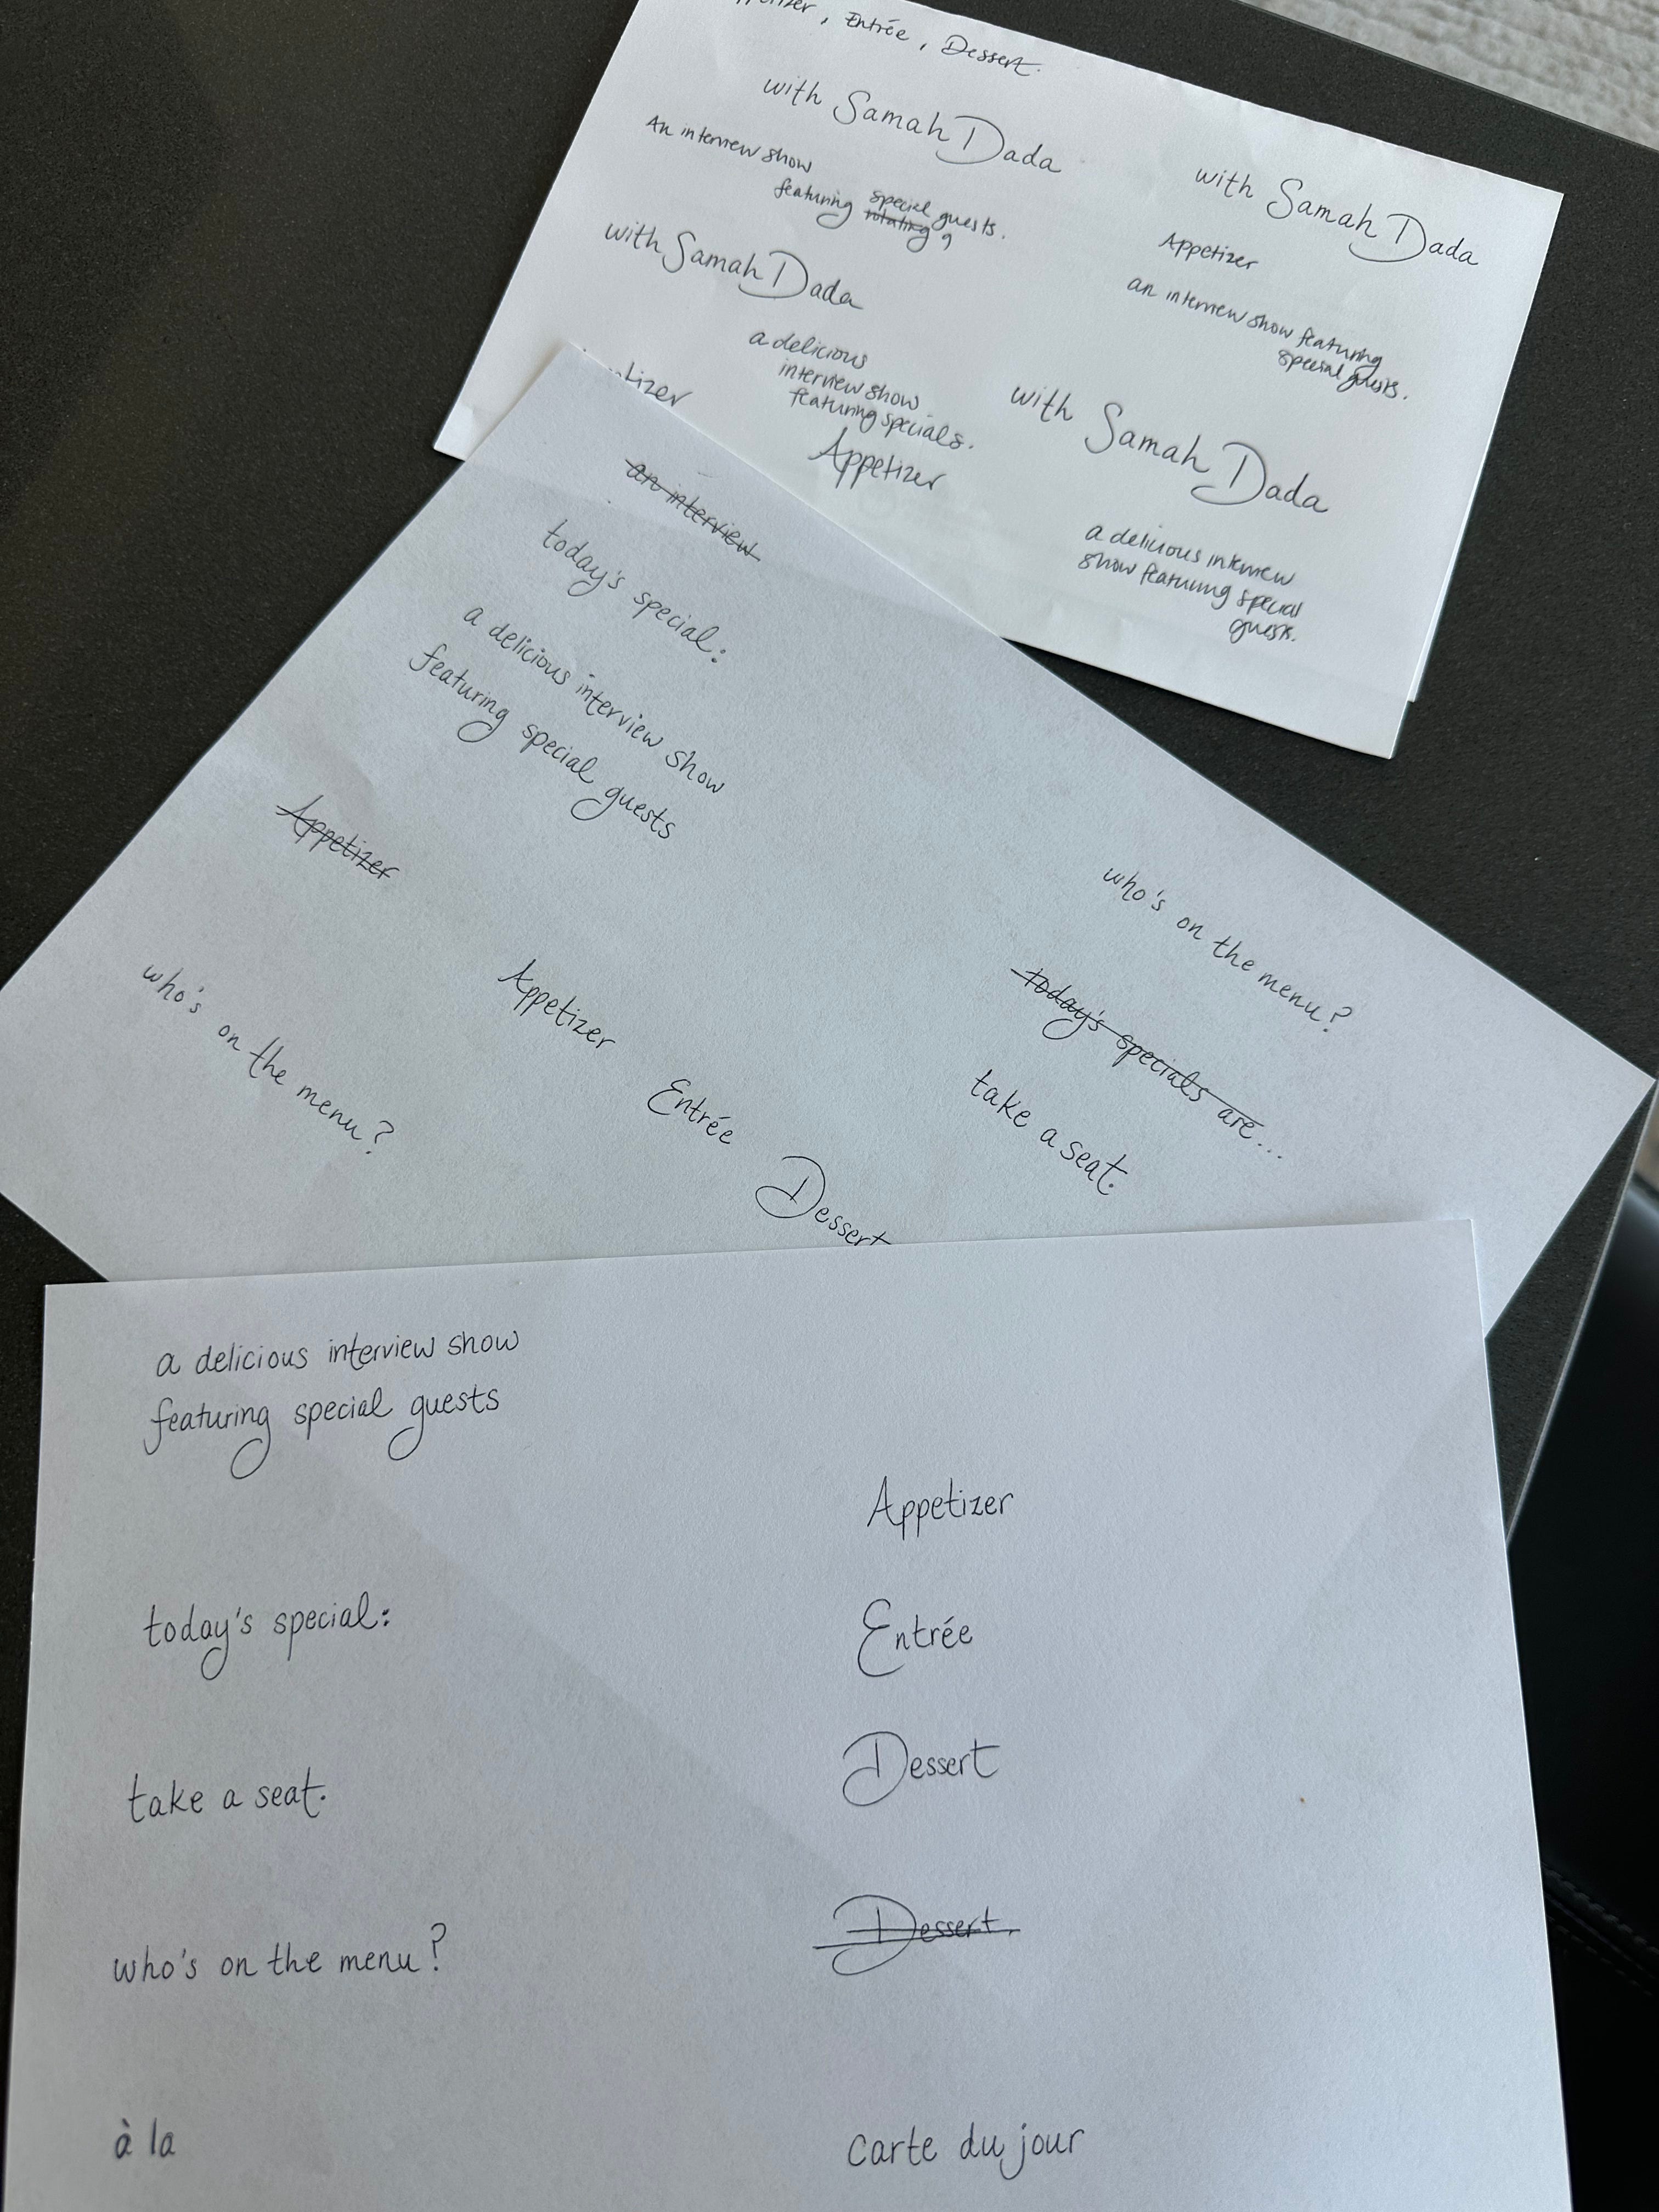 , Entrée, Dessert.
with Samah Dada
An interview show
featuring special guests.
rotating g
with Samah Dada
a delicious
interview show
featuring specials.
Appetizer
with Samah Dada
Appetizer
an interview show featuring
special guests.
with Samah Dada
a delicious interview
show featuring special
guests.
an interview
today's special:
a delicious interview show
featuring special guests
Appetizer
who's on the menu?
Appetizer
Entrée
Dessert
who's on the menu?
today's specials are...
take a seat.
a delicious interview show
featuring special guests
today's special:
take a seat.
who's on the menu?
à la
Appetizer
Entrée
Dessert
Dessert.
carte du jour